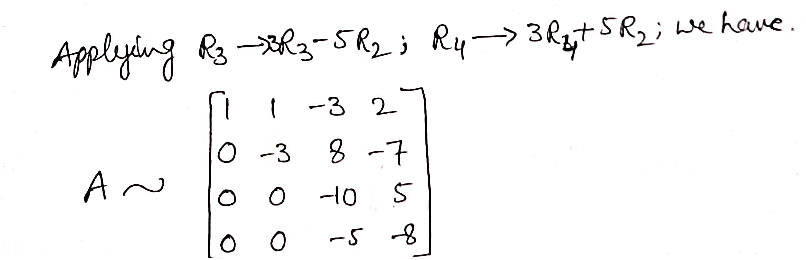 Applying R3 → 3R3 - 5R2; R4 → 3R4 + 5R2; we have.
1 1 -3 2
0 -3 8 -7
A ~
0 0 -10 5
0 0 -5 -8